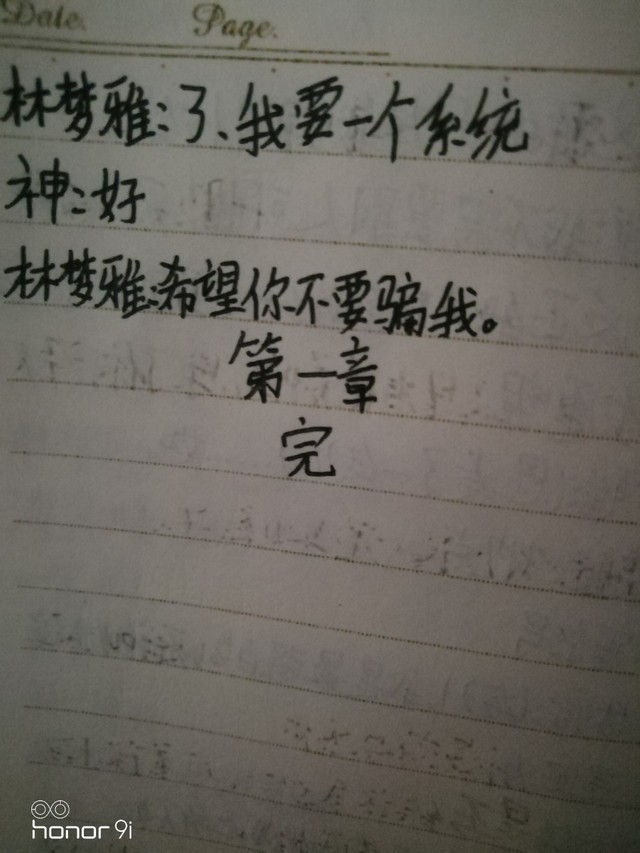 Date. Page.
林梦雅:了、我要一个系统
神:好
林梦雅:希望你不要骗我。
第一章
完
honor 9i